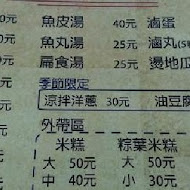 元 魚皮湯 40元 滷蛋
元 魚丸湯 25元 滷丸(5
扁食湯 25元 燙地瓜
季節限定
涼拌洋蔥 30元 油豆腐
外帶區
米糕 粽葉米糕
大 50元 大 50元
中 40元 小 30元